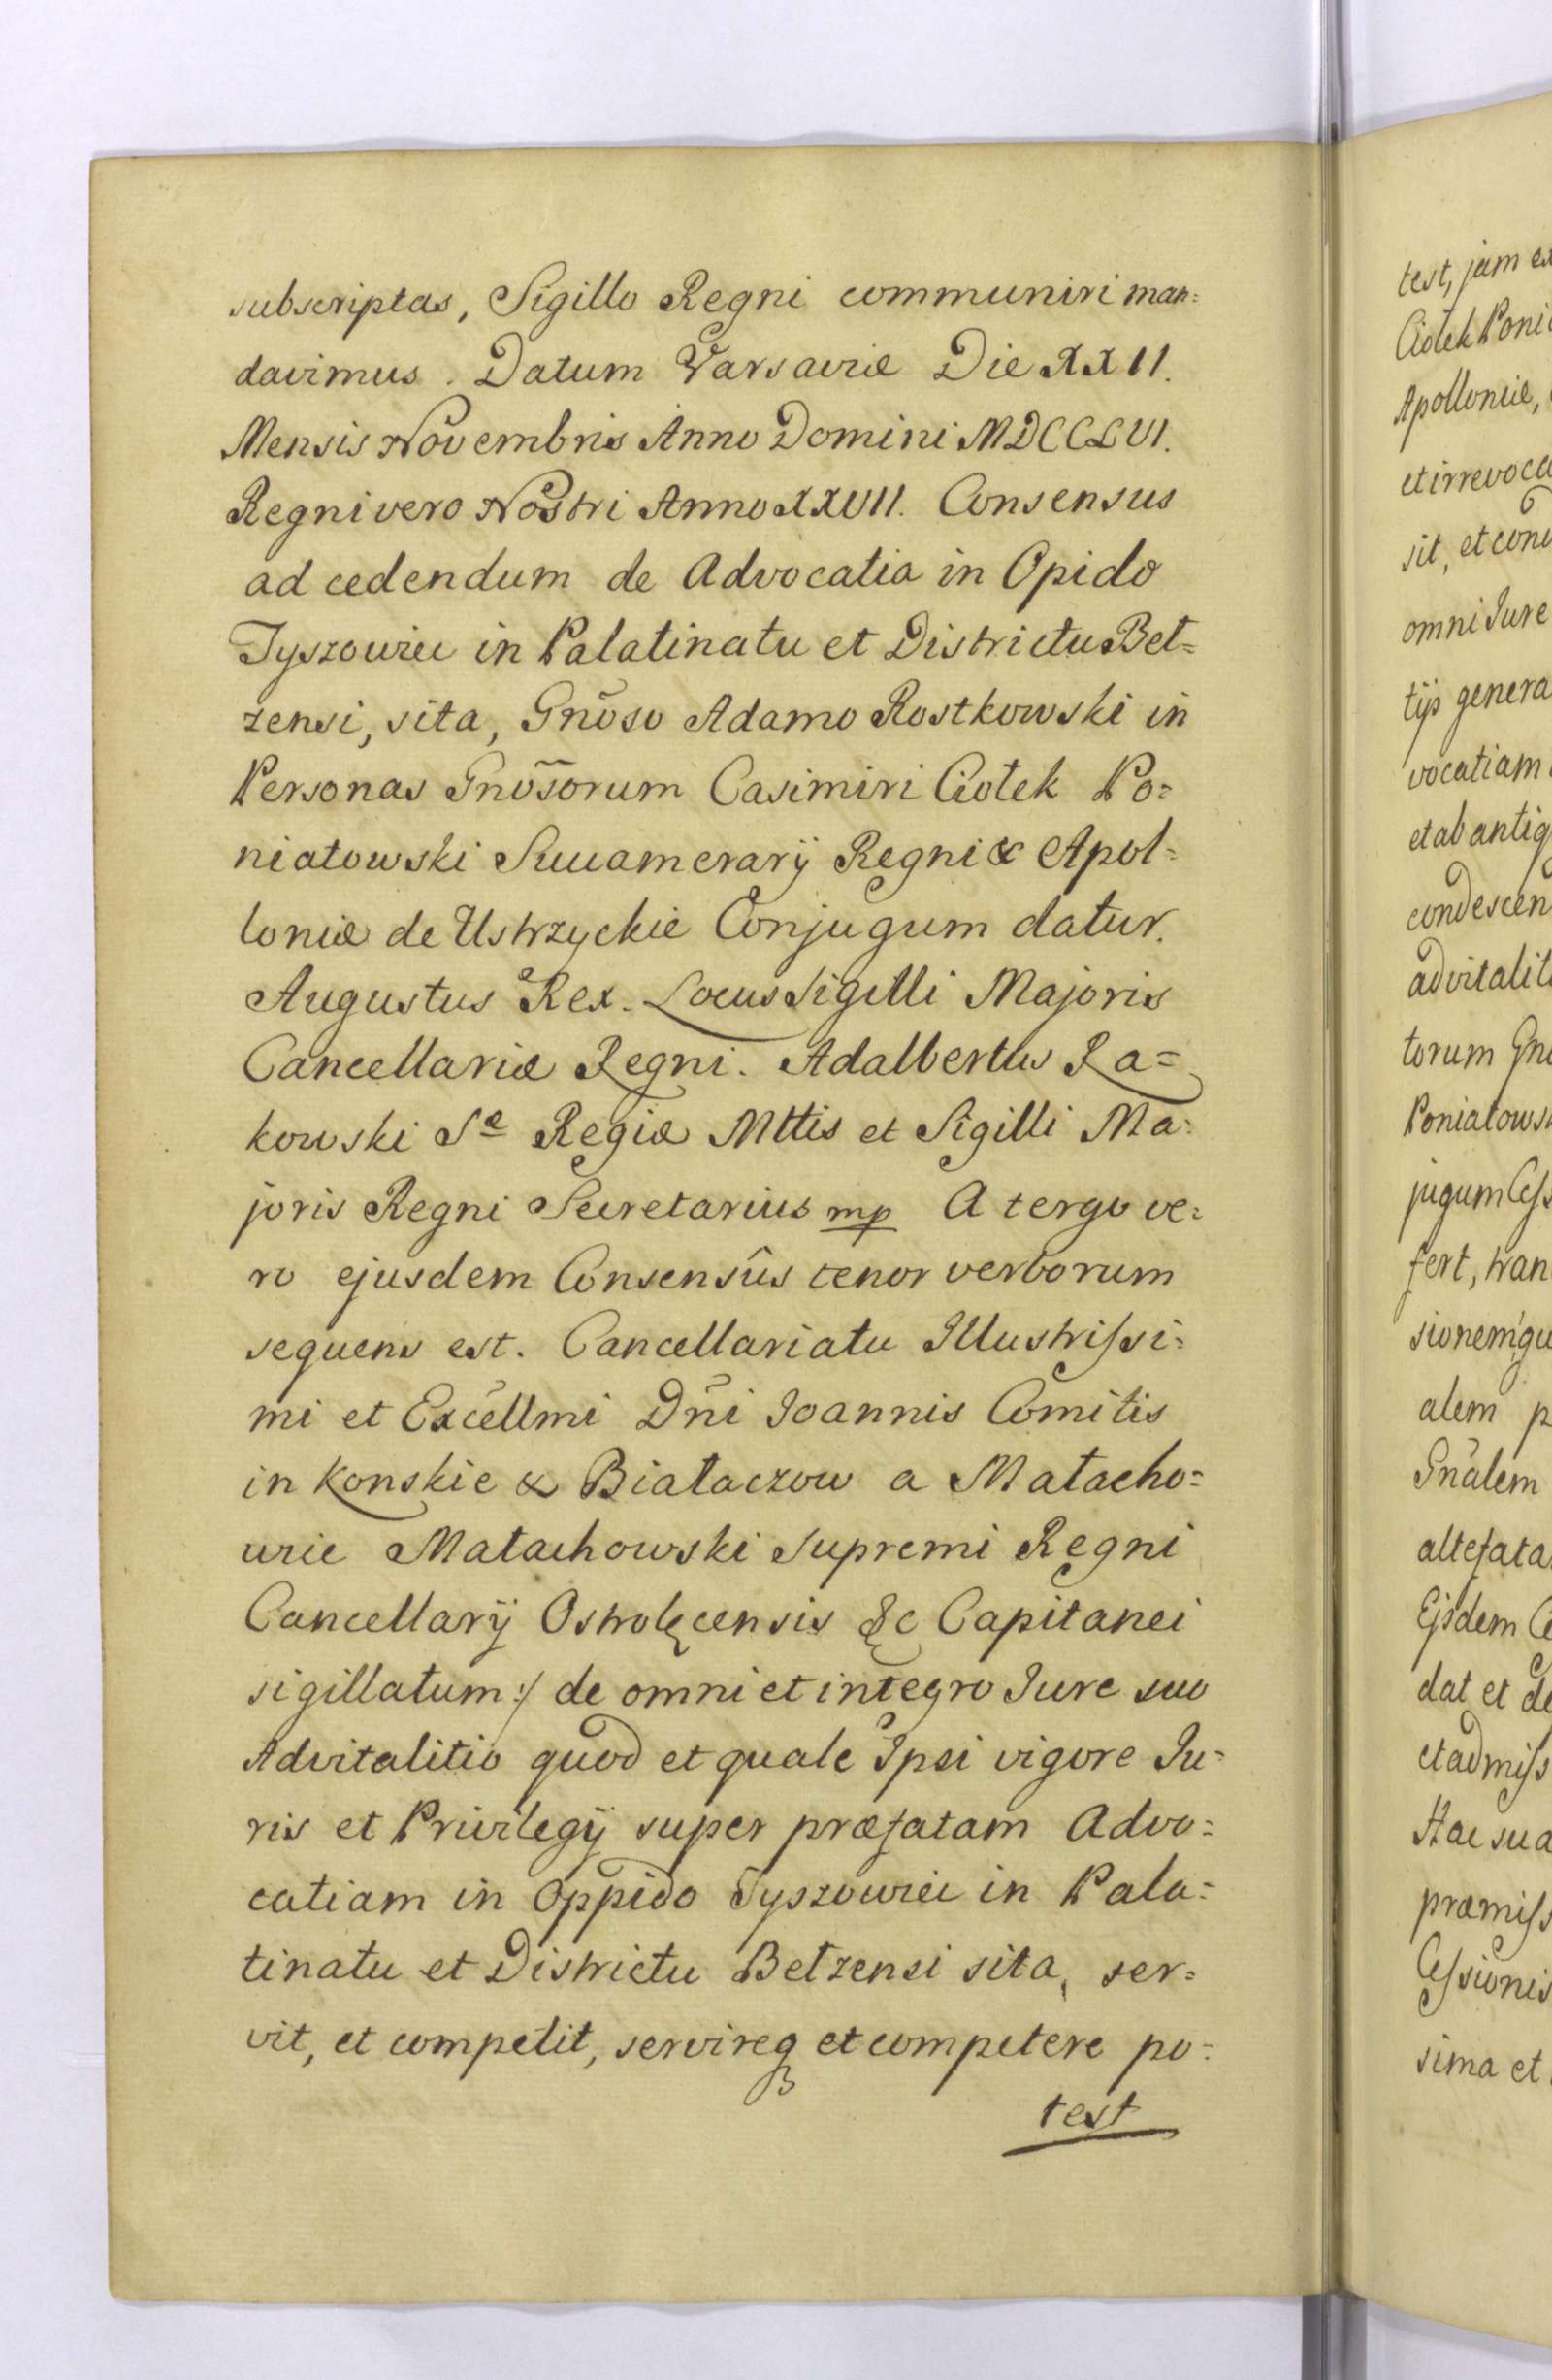 subscriptas, Sigillo Regni communiri man=
davimus. Datum Varsaviæ Die XXII.
Mensis Novembris Anno Domini MDCCLVI.
Regni vero Nostri Anno XXVII. Consensus
ad cedendum de Advocatia in Opido
Tyszowiec in Palatinatu et Districtu Beł=
zensi, sita, Gnõso Adamo Rostkowski in
Personas Gnõsorum Casimiri Ciołek Po=
niatowski Succamerarÿ Regni & Apol=
loniæ de Ustrzyckie Conjugum datur.
Augustus Rex. Locus Sigilli Majoris
Cancellariæ Regni. Adalbertus Ra=
kowski Sæ Regiæ Mttis et Sigilli Ma=
joris Regni Secretarius mp A tergo ve=
ro ejusdem Consensûs tenor verborum
sequens est. Cancellariatu Illustrissi=
mi et Excellmi Dñi Joannis Comitis
in Konskie & Białaczow a Małacho=
wice Małachowski Supremi Regni
Cancellarÿ Ostrołęcensis &c Capitanei
sigillatum:/ de omni et integro Jure suo
Advitalitio quod et quale Ipsi vigore Ju=
ris et Privilegÿ super præfatam Advo=
catiam in Oppido Tyszowiec in Pala=
tinatu et Districtu Bełzensi sita, ser=
vit, et competit, servireq; et competere po=
test
test, jam
Apolloniæ,
omni Jure
vocatiam
torum
fert,
alem
Gnãlem
dat et
sima et